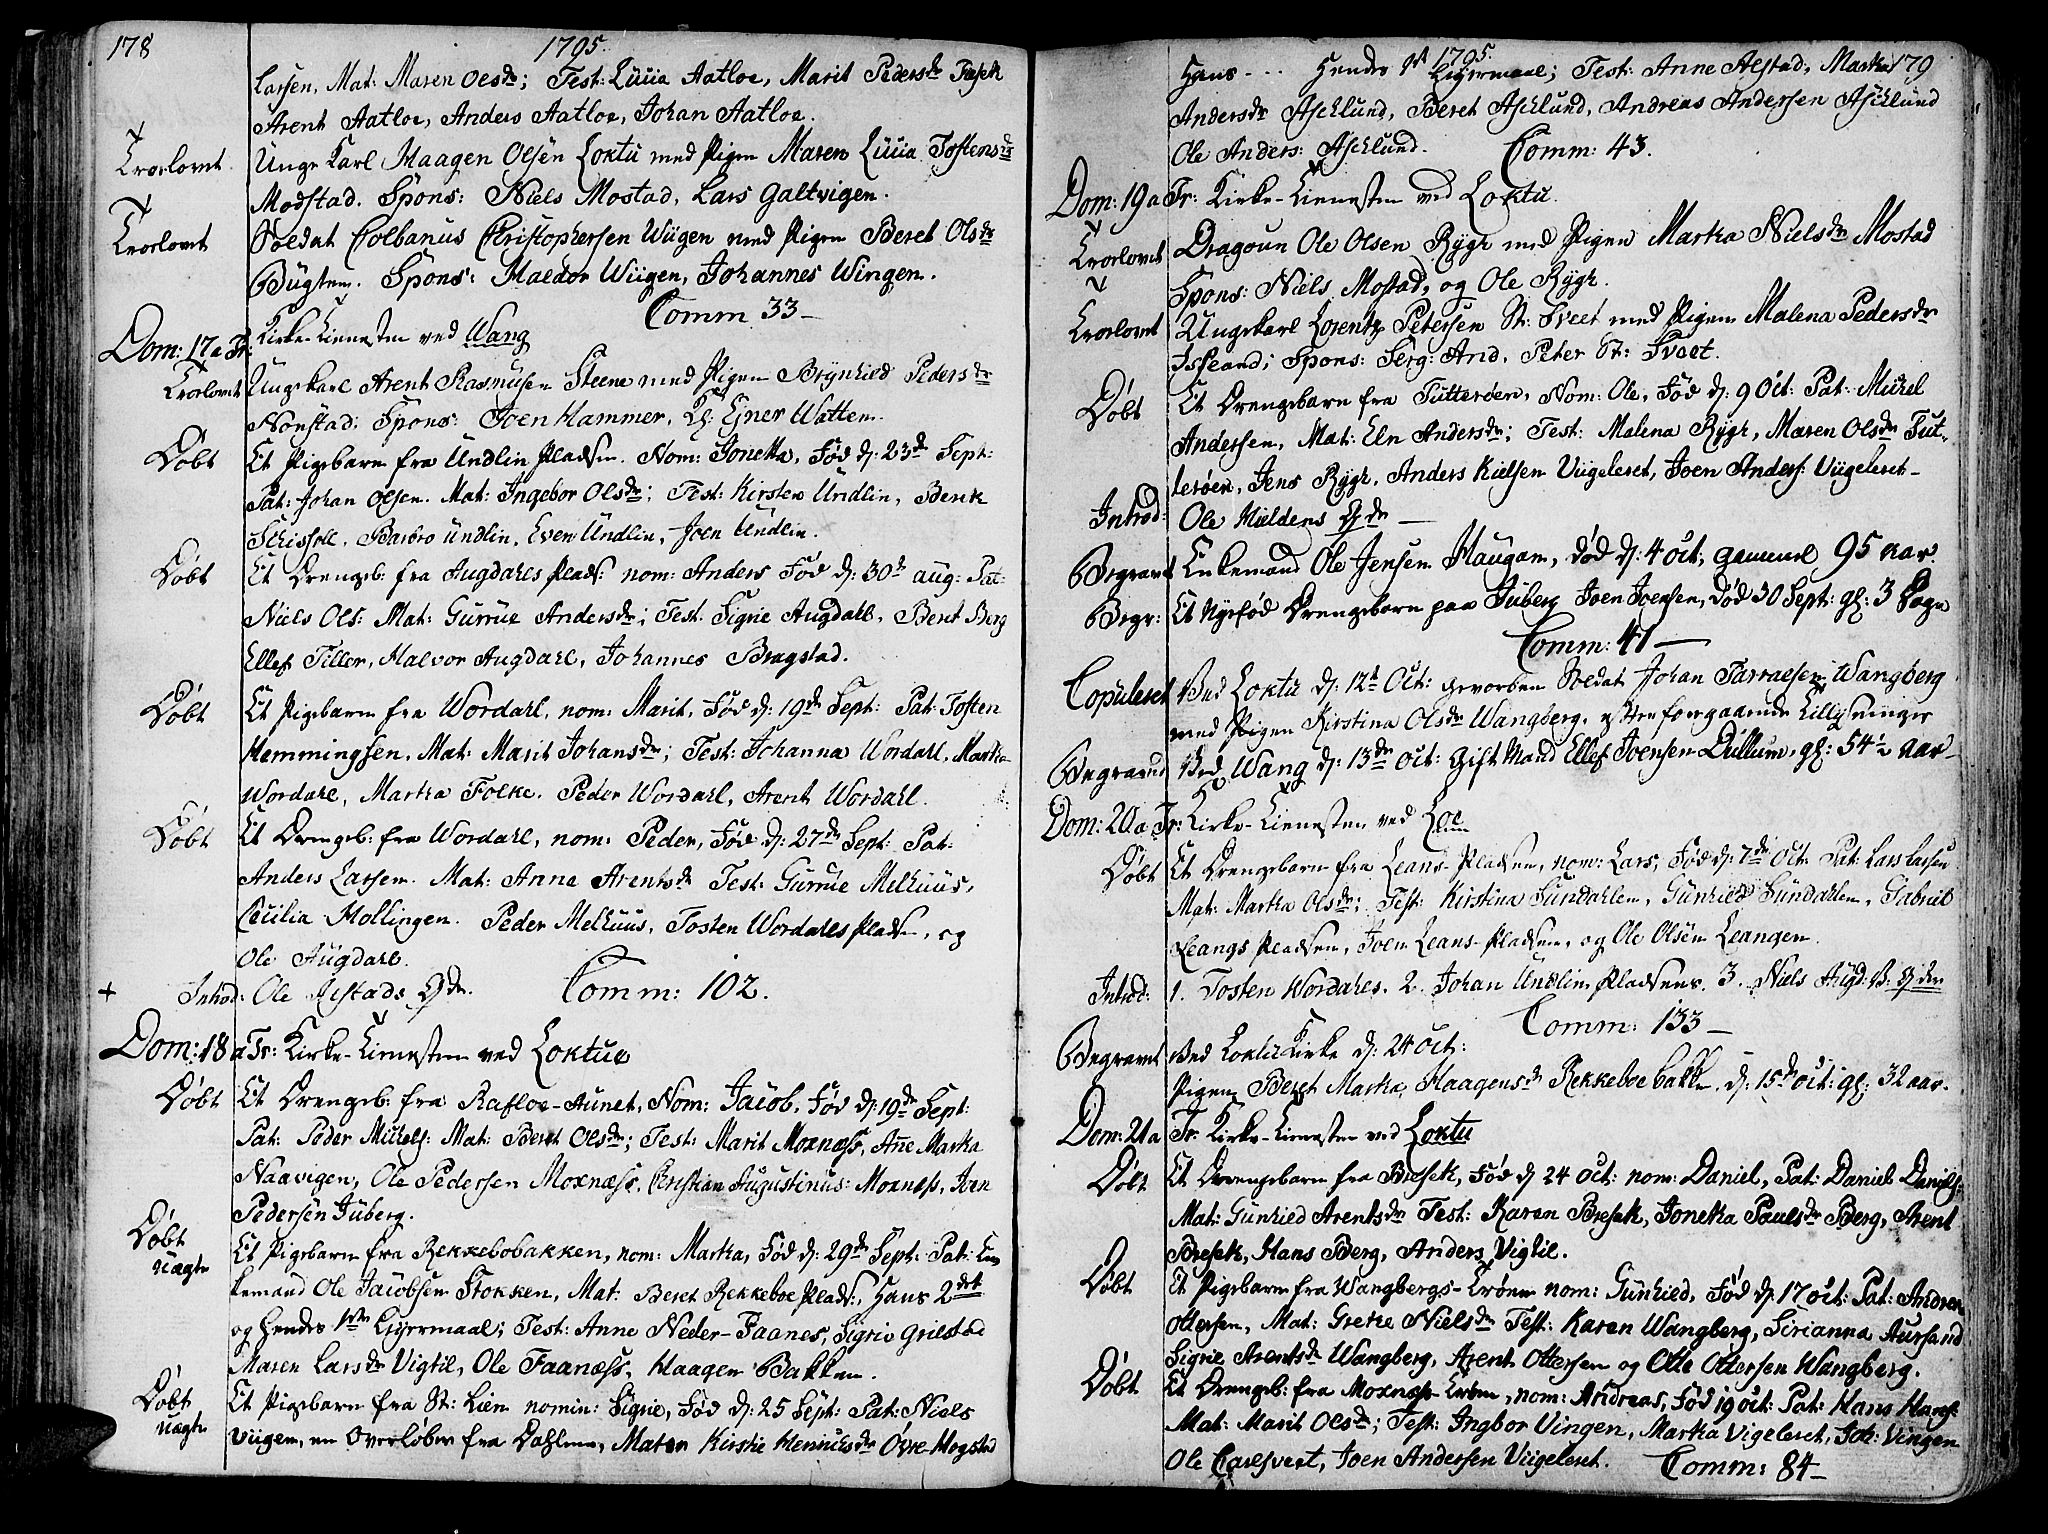 178
1795.
Larsen, Mat: Maren Olsdr; Test: Lucia Aatloe, Marit Pedersdr Fæsek
Arent Aatloe, Anders Aatloe, Johan Aatloe.
Trolovet. Unge Karl Haagen Olsen Loktu med Pigen Maren Lucia Tostensdr
Modstad. Spons: Niels Mostad, Lars Galtvigen.
Trolovet Soldat Colbanus Christophersen Wiigen med Pigen Beret Olsdr
Bügten. Spons: Haldor Wiigen, Johannes Wingen.
Comm 33
Dom: 17 a Tr: Kirke-Tienesten ved Wang
Trolovet Ungekarl Arent Rasmusen Steene med Pigen Brynhild Pedersdr
Nonstad; Spons: Joen Hammer, Ejner Watten.
Døbt Et Pigebarn fra Undlin Pladsen. Nom: Jonetta, Fød d: 23de Sept:
Pat: Johan Olsen. Mat: Ingebor Olsdr; Test: Kirsten Undlin, Berit
Barbro Undlin, Even Undlin, Joen Undlin.
Døbt Et Drengeb: fra Augdahls Plads: nom: Anders Fød d: 30te aug: Pat:
Niels Ols: Mat: Gurrue Andersdr; Test. Sigrie Augdahl, Berit Berg
Ellef Tiller, Halvor Augdahl, Johannes Bragstad.
Døbt Et Pigebarn fra Wordahl, nom: Marit, Fød d: 19de Sept: Pat: Tosten
Hemmingsen. Mat: Marit Johansdr; Test: Johanna Wordahl, Martha
Wordahl, Martha Folke. Peder Wordahl, Arent Wordahl.
Døbt Et Drengeb: fra Wordahl, nom: Peder, Fød d: 27de Sept: Pat:
Anders Larsen. Mat: Anne Arentsdr Test: Gurrue Melhuus,
Cecilia Hollingen. Peder Melhuus, Tosten Wordahls Pladsen, og
Ole Augdahl.
+ Introd: Ole Alstads Qvdr. Comm: 102.
Dom: 18 a Tr: Kirke-Tienesten ved Loktue
Døbt Et Drengeb: fra Rafloe-Aunet, Nom: Jacob, Fød d: 19de Sept:
Pat: Peder Michels: Mat: Beret Olsdr; Test: Marit Moxnæss, Ane Marka
Naavigen, Ole Pedersen Moxnæss, Christian Augustinus: Moxnæss, Joen
Pedersen Juberg.
Døbt uægte Et Pigebarn fra Rekkebobakken, nom: Martha, Fød d: 29de Sept: Pat: En-
kemand Ole Jacobsen Stokken, Mat: Beret Rekkeboe Plads:, Hans 2det
og Hendes 1ste Leyermaal; Test: Anne Neder-Faanes, Sigrie Grilstad
Maren Larsdr Vigtil, Ole Faanæss, Haagen Bakken.
Døbt uægte Et Pigebarn fra St: Lien nomin: Sigrie, Fød d: 25 Sept: Pat: Niels
Viigen, en Overløber fra Dahlene, Mater Kirstie Henrichsdr Ovre Hogstad
1795.
179
Hans ... Hendes 1st Leyermaal; Test: Anne Alstad, Martha
Andersdr Ascklund, Beret Ascklund, Andreas Andersen Ascklund
Ole Anders: Ascklund. Comm: 43.
Dom: 19 a Tr: Kirke-Tienesten ved Loktu.
Trolovet Dragoun Ole Olsen Rygh med Pigen Martha Nielsdr Mostad
Spons: Niels Mostad, og Ole Rygh.
Trolovet Ungekarl Lorentz Petersen St: Sveet med Pigen Malena Pedersdr
Isfeand; Spons: Serg: And. Peter St: Sveet.
Døbt Et Drengebarn fra Tutterøen, Nom: Ole, Fød d: 9 Oct: Pat: Michel
Andersen, Mat: Eln Andersdr; Test: Malena Rygh, Maren Olsdr Tut-
terøen, Jens Rygh, Anders Kielsen Viigeleret, Joen Anders: Viigeleret
Introd: Ole Hieldens Qvdr
Begravet Enkemand Ole Jensen Haugan, død d: 4 Oct; gammel 95 aar.
Begr: Et Nyefød Drengebarn paa Juberg Joen Joensen, død 30 Sept: gl: 3 Dage
Comm: 41
Copuleret Ved Loktu d: 12te Oct: gevorben Soldat Johan Tarraldsen Wangberg
med Pigen Kirstina Olsdr Wangberg, efter foregaaende Tillysninger
Begraved Ved Wang d: 13de Oct: Gift Mand Ellef Joensen Dullum, gl: 54½ aar
Dom: 20 a Tr: Kirke-Tienesten ved
Døbt Et Drengebarn fra Leans-Pladsen, nom: Lars, Fød d: 7de Oct. Pat: Lars Larsen
Mat: Martha Olsdr; Test: Kirstina Sundahlen, Gunhild Sundahlen, Gabriel
Leangs Pladsen, Joen Leans-Pladsen, og Ole Olsen Leangen.
Introd: 1. Tosten Wordahls. 2. Johan Undlin Pladsens. 3. Niels Augd: Pl: Qvdr
Comm: 133
Begravet Ved Loktu Kirke d: 24 Oct:
Pigen Beret Martha Haagensdr Rekkeboe bakken d: 15de Oct: gl: 32 aar.
Dom: 21 a Tr: Kirke-Tienesten ved Loktu
Døbt Et Drengebarn fra Bresek, Fød d 24 Oct: nom: Daniel, Pat: Daniel Daniels:
Mat: Gunhild Arentsdr Test: Karen Bresek, Joneka Paulsdr Berg, Arent
Bresek, Hans Berg, Anders Vigtil.
Døbt Et Pigebarn fra Wangbergs-Trøen nom: Gunhied, Fød d: 17 Oct: Pat: Andreas
Ottersen, Mat: Grethe Nielsdr Test: Karen Wangberg, Sirianna Aursand
Sigrie Arentsdr Wangberg, Arent Ottersen og Otte Ottersen Wangberg.
Døbt Et Drengeb: fra Moxnæss-Trøen, nom: Andreas, Fød 19 Oct: Pat: Hans Hans:
Mat: Marit Olsdr; Test: Ingbor Vingen, Martha Vigeleret, Joh: Vingen
Ole Carlsvert, Joen Andersen Viigeleret. Comm: 84